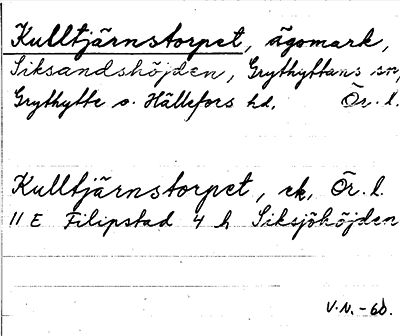 Kulltjärnstorpet, ägomark,
Siksandshöjden, Grythyttans sn,
Grythytte o. Hällefors hd. Ör. l.
Kulltjärnstorpet, ek, Ör. l.
11 E Filipstad 4 h Siksjöhöjden
V.N. -60.